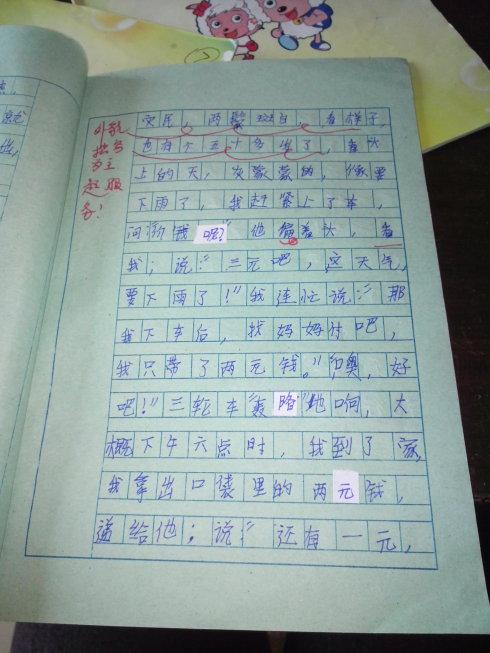 实后，两鬓斑白，看样子，
也有个五十多岁了，看头
上的天，灰蒙蒙的，像要
下雨了，我赶紧上了车，
问 我 呢？”他偏着头，看
我；说：“三元吧，这天气，
要下雨了！”我连忙说：“那
我下车后，找妈妈付吧，
我只带了两元钱。”“噢，好
吧！”三轮车 路 响，大
概下午六点时，我到了家，
我拿出口袋里的两元钱，
递给他；说：“还有一元，
为主
服
务！